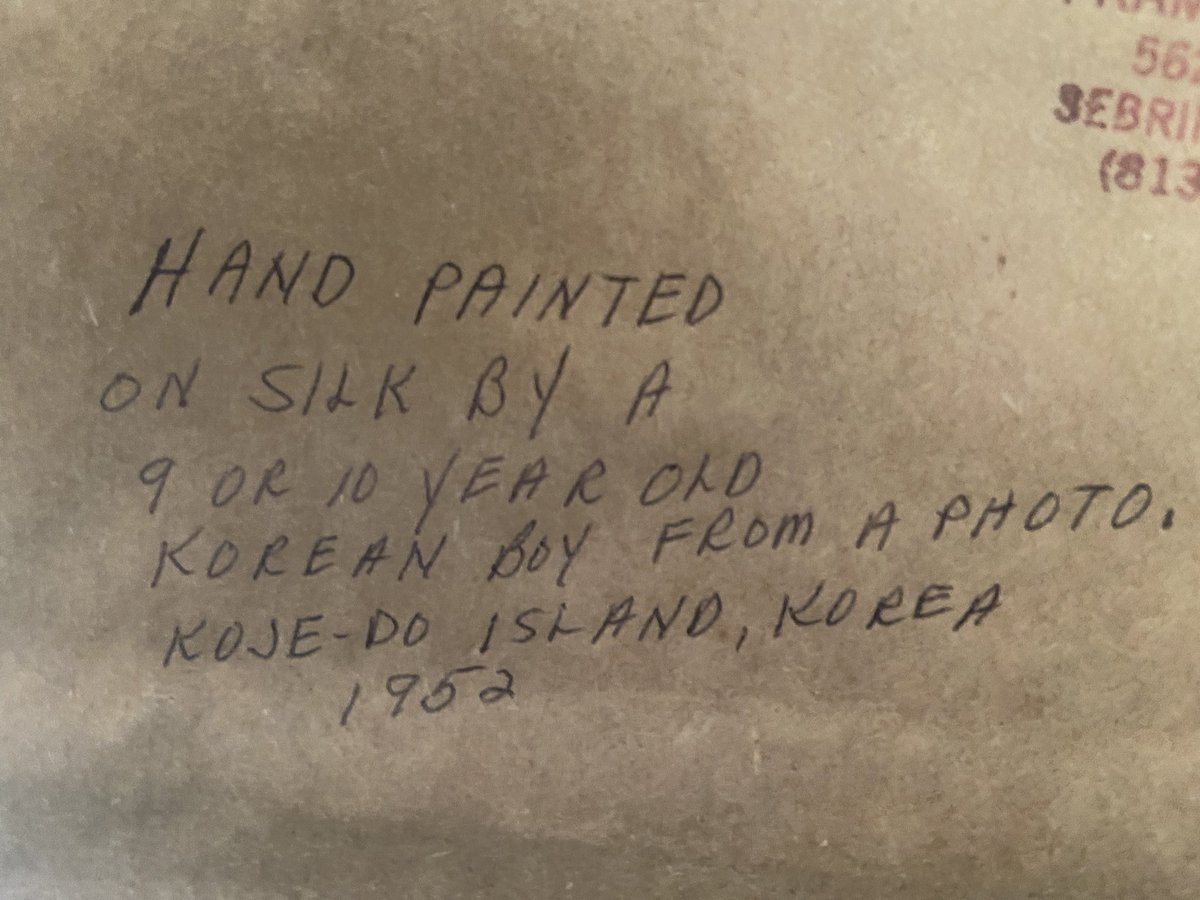 562
SEBRI
(813
HAND PAINTED
ON SILK BY A
9 OR 10 YEAR OLD
KOREAN BOY FROM A PHOTO.
KOJE-DO ISLAND, KOREA
1952